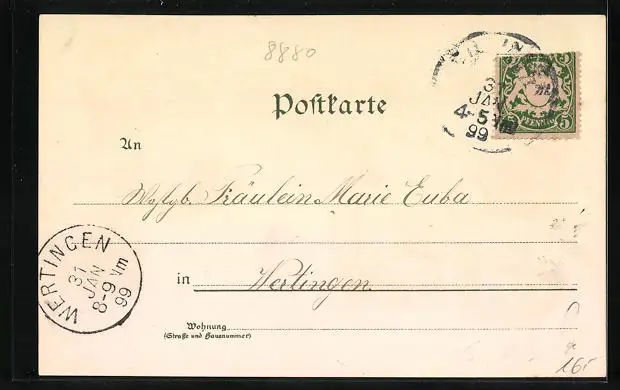 8880
Postkarte
5 5
PFENNIG
5 5
3
JAN
4-5
99
An
Wohlgb. Fräulein Marie Euba
WERTINGEN
31
JAN
8-9 Vm
99
in Wertingen.
Wohnung
(Straße und Hausnummer)
165